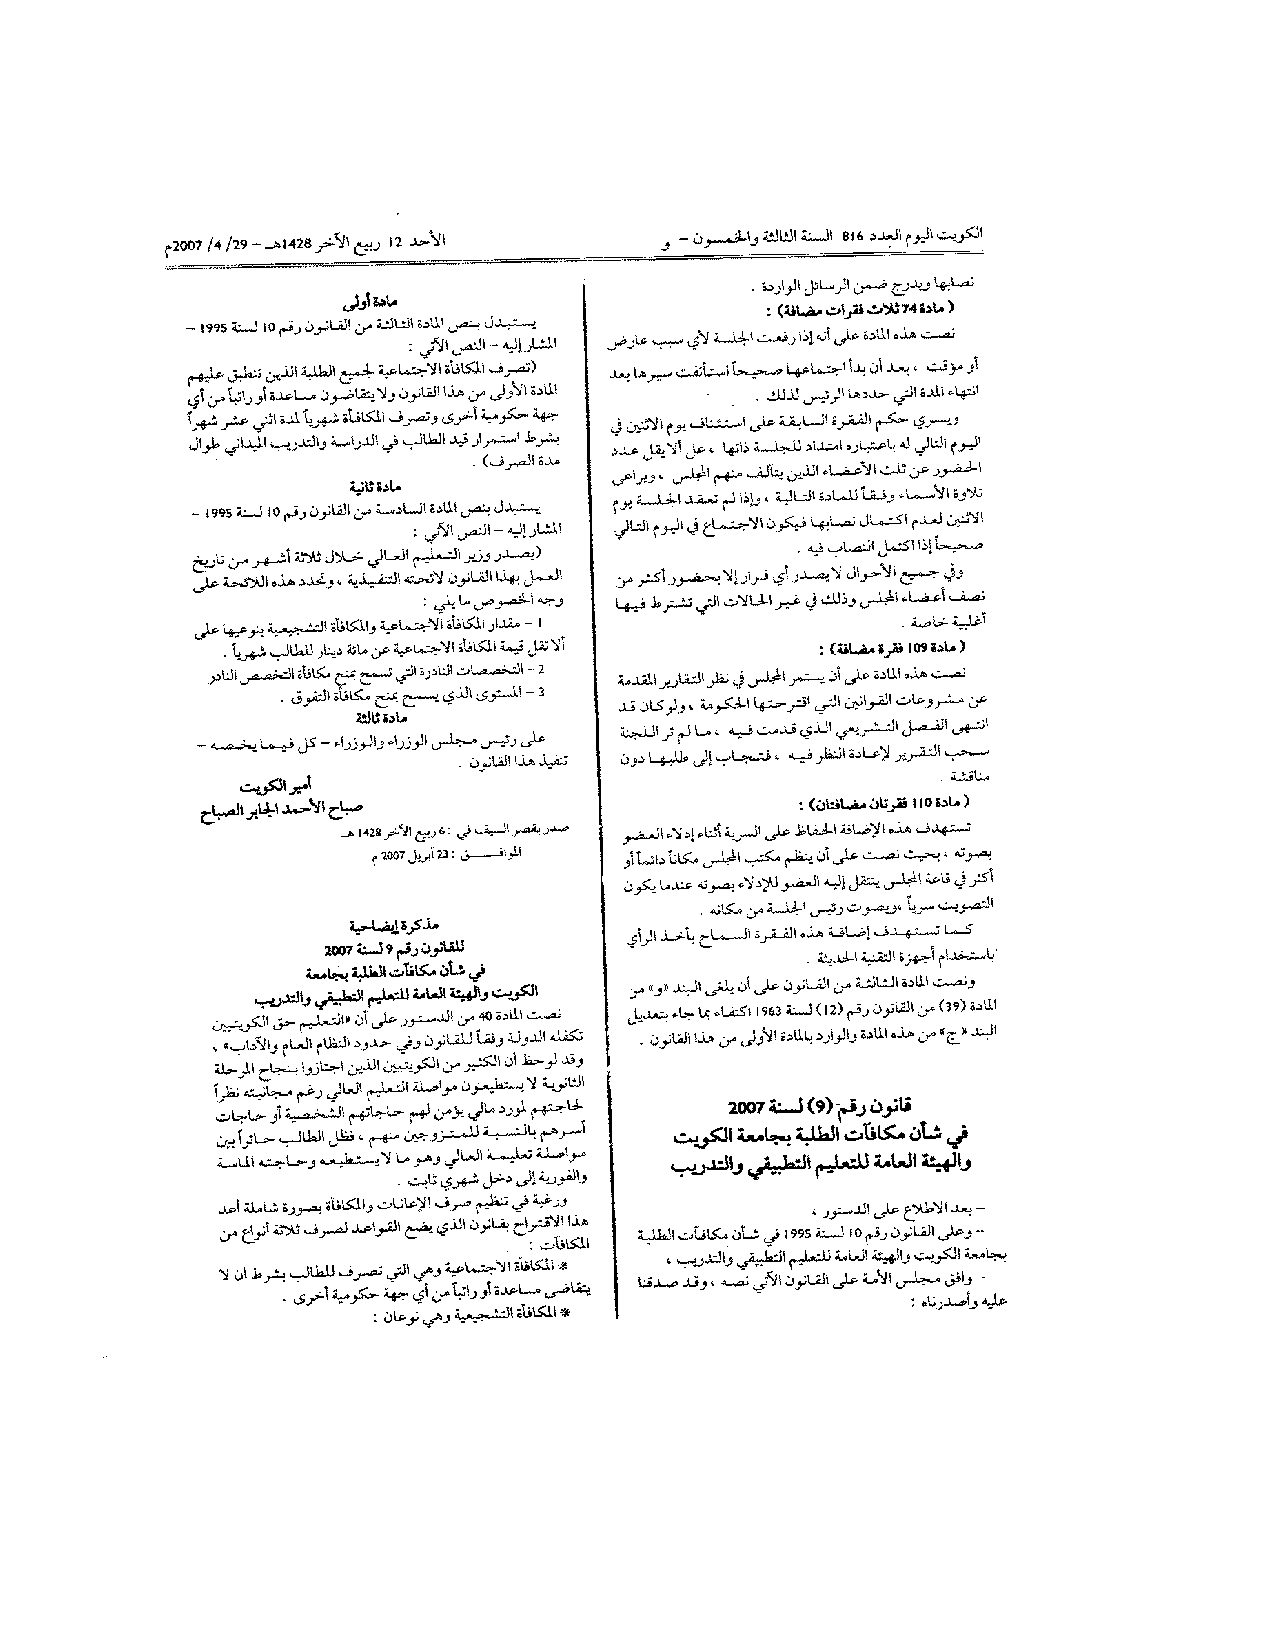 الكويت اليوم العدد 816 السنة الثالثة والخمسون – و
الأحد 12 ربيع الآخر 1428هـ – 29/ 4/ 2007م
نصابها ويدرج ضمن الرسائل الواردة .
( مادة 74 ثلاث فقرات مضافة) :
نصت هذه المادة على أنه إذا رفعت الجلسة لأي سبب عارض
أو مؤقت ، بعد أن بدأ اجتماعها صحيحاً استأنفت سيرها بعد
انتهاء المدة التي حددها الرئيس لذلك .
ويسري حكم الفقرة السابقة على استئناف يوم الاثنين في
اليوم التالي له باعتباره امتداد للجلسة ذاتها ، على ألا يقل عدد
الحضور عن ثلث الأعضاء الذين يتألف منهم المجلس ، ويراعى
تلاوة الأسماء وفقاً للمادة التالية ، وإذا لم تعقد الجلسة يوم
الاثنين لعدم اكتمال نصابها فيكون الاجتماع في اليوم التالي
صحيحاً إذا اكتمل النصاب فيه .
وفي جميع الأحوال لا يصدر أي قرار إلا بحضور أكثر من
نصف أعضاء المجلس وذلك في غير الحالات التي تشترط فيها
أغلبية خاصة .
( مادة 109 فقرة مضافة) :
نصت هذه المادة على أن يستمر المجلس في نظر التقارير المقدمة
عن مشروعات القوانين التي اقترحتها الحكومة ، ولو كان قد
انتهى الفصل التشريعي الذي قدمت فيه ، ما لم تر اللجنة
سحب التقرير لإعادة النظر فيه ، فتجاب إلى طلبها دون
مناقشة .
( مادة 110 فقرتان مضافتان) :
تستهدف هذه الإضافة الحفاظ على السرية أثناء إدلاء العضو
بصوته ، بحيث نصت على أن ينظم مكتب المجلس مكاناً دائماً أو
أكثر في قاعة المجلس ينتقل إليه العضو للإدلاء بصوته عندما يكون
التصويت سرياً ،ويصوت رئيس الجلسة من مكانه .
كما تستهدف إضافة هذه الفقرة السماح بأخذ الرأي
باستخدام أجهزة التقنية الحديثة .
ونصت المادة الثالثة من القانون على أن يلغى البند «و» من
المادة (39) من القانون رقم (12) لسنة 1963 اكتفاء بما جاء بتعديل
البند «ج» من هذه المادة والوارد بالمادة الأولى من هذا القانون .
قانون رقم (9) لسنة 2007
في شأن مكافآت الطلبة بجامعة الكويت
والهيئة العامة للتعليم التطبيقي والتدريب
– بعد الاطلاع على الدستور ،
– وعلى القانون رقم 10 لسنة 1995 في شأن مكافآت الطلبة
بجامعة الكويت والهيئة العامة للتعليم التطبيقي والتدريب ،
- وافق مجلس الأمة على القانون الآتي نصه ، وقد صدقنا
عليه وأصدرناه :
مادة أولى
يستبدل بنص المادة الثالثة من القانون رقم 10 لسنة 1995 –
المشار إليه – النص الآتي :
(تصرف المكافأة الاجتماعية لجميع الطلبة الذين تنطبق عليهم
المادة الأولى من هذا القانون ولا يتقاضون مساعدة أو راتباً من أي
جهة حكومية أخرى وتصرف المكافأة شهرياً لمدة اثني عشر شهراً
بشرط استمرار قيد الطالب في الدراسة والتدريب الميداني طوال
مدة الصرف) .
مادة ثانية
يستبدل بنص المادة السادسة من القانون رقم 10 لسنة 1995 –
المشار إليه – النص الآتي :
(يصدر وزير التعليم العالي خلال ثلاثة أشهر من تاريخ
العمل بهذا القانون لائحته التنفيذية ، وتحدد هذه اللائحة على
وجه الخصوص ما يلي :
1 – مقدار المكافأة الاجتماعية والمكافأة التشجيعية بنوعيها على
ألا تقل قيمة المكافأة الاجتماعية عن مائة دينار للطالب شهرياً .
2 – التخصصات النادرة التي تسمح بمنح مكافأة التخصص النادر
3 – المستوى الذي يسمح بمنح مكافأة التفوق .
مادة ثالثة
على رئيس مجلس الوزراء والوزراء – كل فيما يخصه –
تنفيذ هذا القانون .
أمير الكويت
صباح الأحمد الجابر الصباح
صدر بقصر السيف في : 6 ربيع الآخر 1428 هـ
الموافـــق : 23 أبريل 2007 م
مذكرة إيضاحية
للقانون رقم 9 لسنة 2007
في شأن مكافآت الطلبة بجامعة
الكويت والهيئة العامة للتعليم التطبيقي والتدريب
نصت المادة 40 من الدستور على أن «التعليم حق الكويتيين
تكفله الدولة وفقاً للقانون وفي حدود النظام العام والآداب» ،
وقد لوحظ أن الكثير من الكويتيين الذين اجتازوا بنجاح المرحلة
الثانوية لا يستطيعون مواصلة التعليم العالي رغم مجانيته نظراً
لحاجتهم لمورد مالي يؤمن لهم حاجاتهم الشخصية أو حاجات
أسرهم بالنسبة للمتزوجين منهم ، فظل الطالب حائراً بين
مواصلة تعليمه العالي وهو ما لا يستطيعه وحاجته الماسة
والفورية إلى دخل شهري ثابت .
ورغبة في تنظيم صرف الإعانات والمكافأة بصورة شاملة أعد
هذا الاقتراح بقانون الذي يضع القواعد لصرف ثلاثة أنواع من
المكافآت :
* المكافأة الاجتماعية وهي التي تصرف للطالب بشرط ان لا
يتقاضى مساعدة أو راتباً من أي جهة حكومية أخرى .
* المكافأة التشجيعية وهي نوعان :